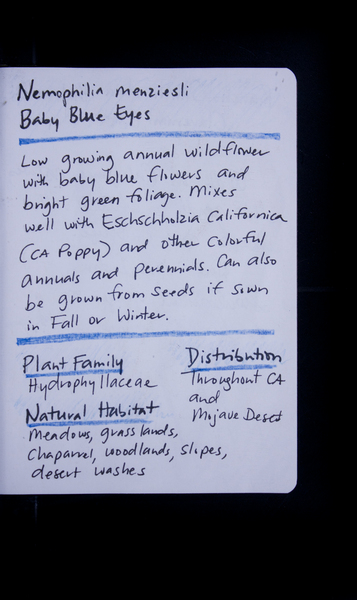 Nemophilia menziesli
Baby Blue Eyes
Low growing annual wildflower
with baby blue flowers and
bright green foliage. Mixes
well with Eschschholzia Californica
(CA Poppy) and other colorful
annuals and perennials. Can also
be grown from seeds if sown
in Fall or Winter.
Plant Family
Hydrophyllaceae
Natural Habitat
meadows, grasslands,
chaparrel, woodlands, slopes,
desert washes
Distribution
Throughout CA
and
Mojave Desert